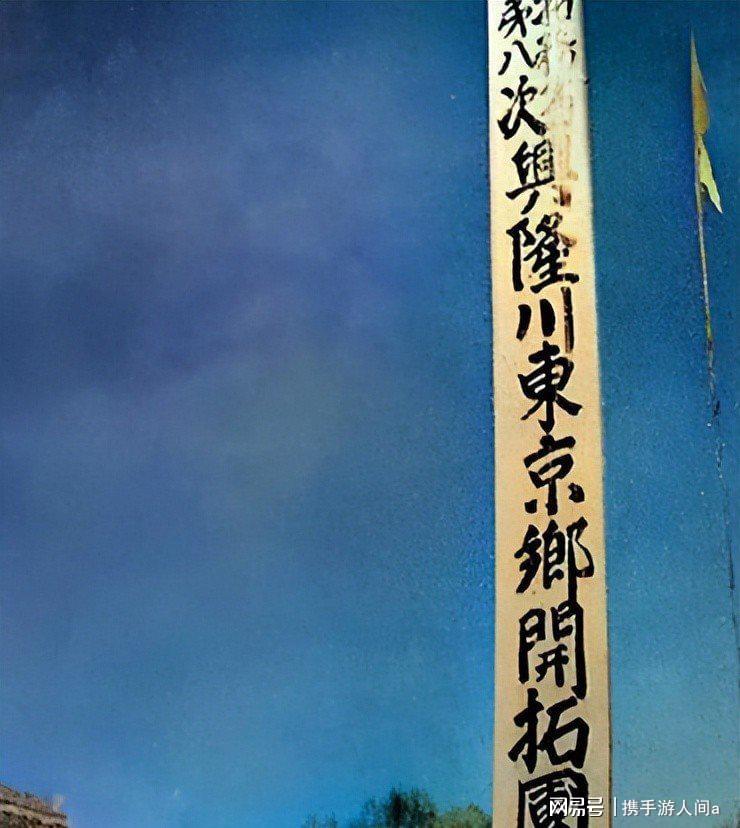 第八次興隆川東京鄉開拓團
網易号 | 携手游人间a